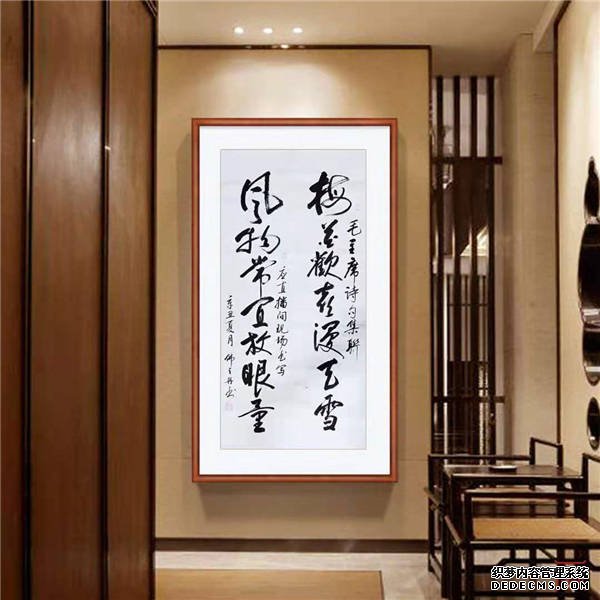 梅花歡喜漫天雪
毛主席诗句集聯
风物常宜放眼量
应直播间现场书写
辛丑夏月
织梦内容管理系统
DEDECMS.COM